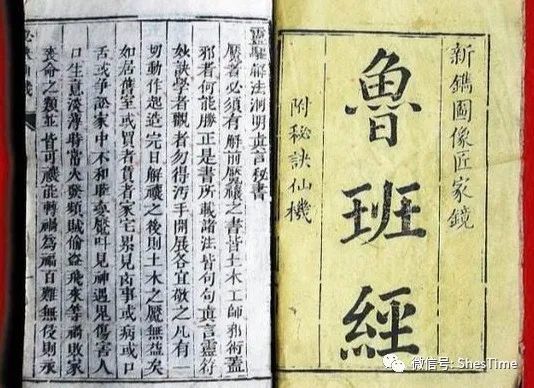 新鐫圖像匠家鏡
魯班經
附秘訣仙機
靈驅解法洞明真言秘書
魘者必須有解前魘禳之書皆土木工師邪術蓋
邪者何能勝正是書所載諸法皆句句真言靈符
妙訣學者觀者勿得汚手開展各宜敬之凡有一
切動作起造完日解禳之後則土木之魘無益矣
如居舊室或買者賃者家宅累見凶事或病或口
舌或爭訟家中不和睡臥魘叫見神遇鬼傷害人
口生意淡薄時常火發頻賊偷盜飛來等禍敗家
喪命之類並皆可禳能轉禍為福百難無侵則承
微信号: ShesTime